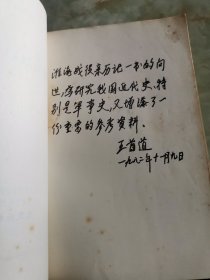 淮海战役亲历记一书的问
世，为研究我国近代史、特
别是军事史，又增添了一
份重要的参考资料。
王首道
一九八二年十一月九日